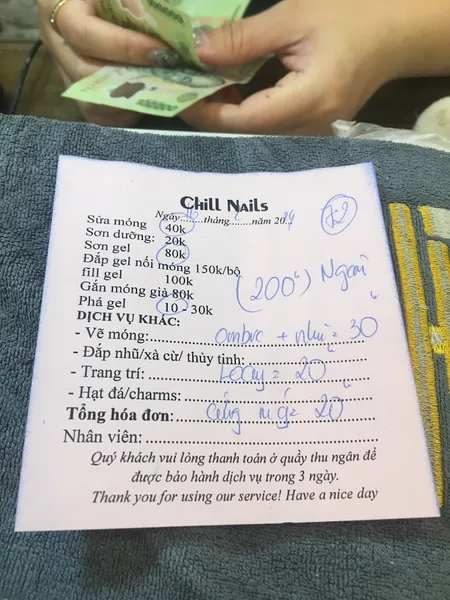 Chill Nails
Ngày 26 tháng 2 năm 2024
Sửa móng 40k
Sơn dưỡng: 20k
Sơn gel 80k
Đắp gel nối móng 150k/bộ
fill gel 100k
Gắn móng giả 80k
Phá gel 10 - 30k
(200k) Ngoai
DỊCH VỤ KHÁC:
- Vẽ móng: ombre + nhũ = 30k
- Đắp nhũ/xà cừ/ thủy tinh:
- Trang trí: = 20k
- Hạt đá/charms:
Tổng hóa đơn: = 20k
Nhân viên:
Quý khách vui lòng thanh toán ở quầy thu ngân để
được bảo hành dịch vụ trong 3 ngày.
Thank you for using our service! Have a nice day